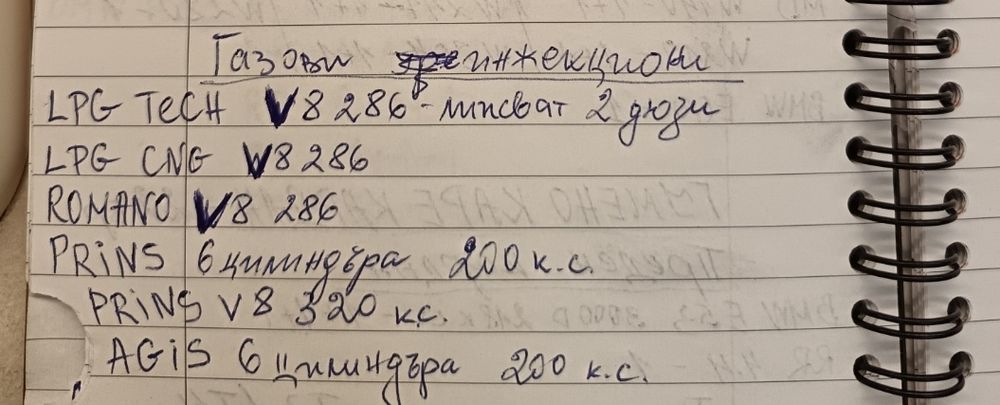 Газови инжекциони
LPG TECH V8 286 - липсват 2 дюзи
LPG CNG V8 286
ROMANO V8 286
PRINS 6 цилиндъра 200 к.с.
PRINS V8 320 кс.
AGIS 6 цилиндъра 200 к.с.